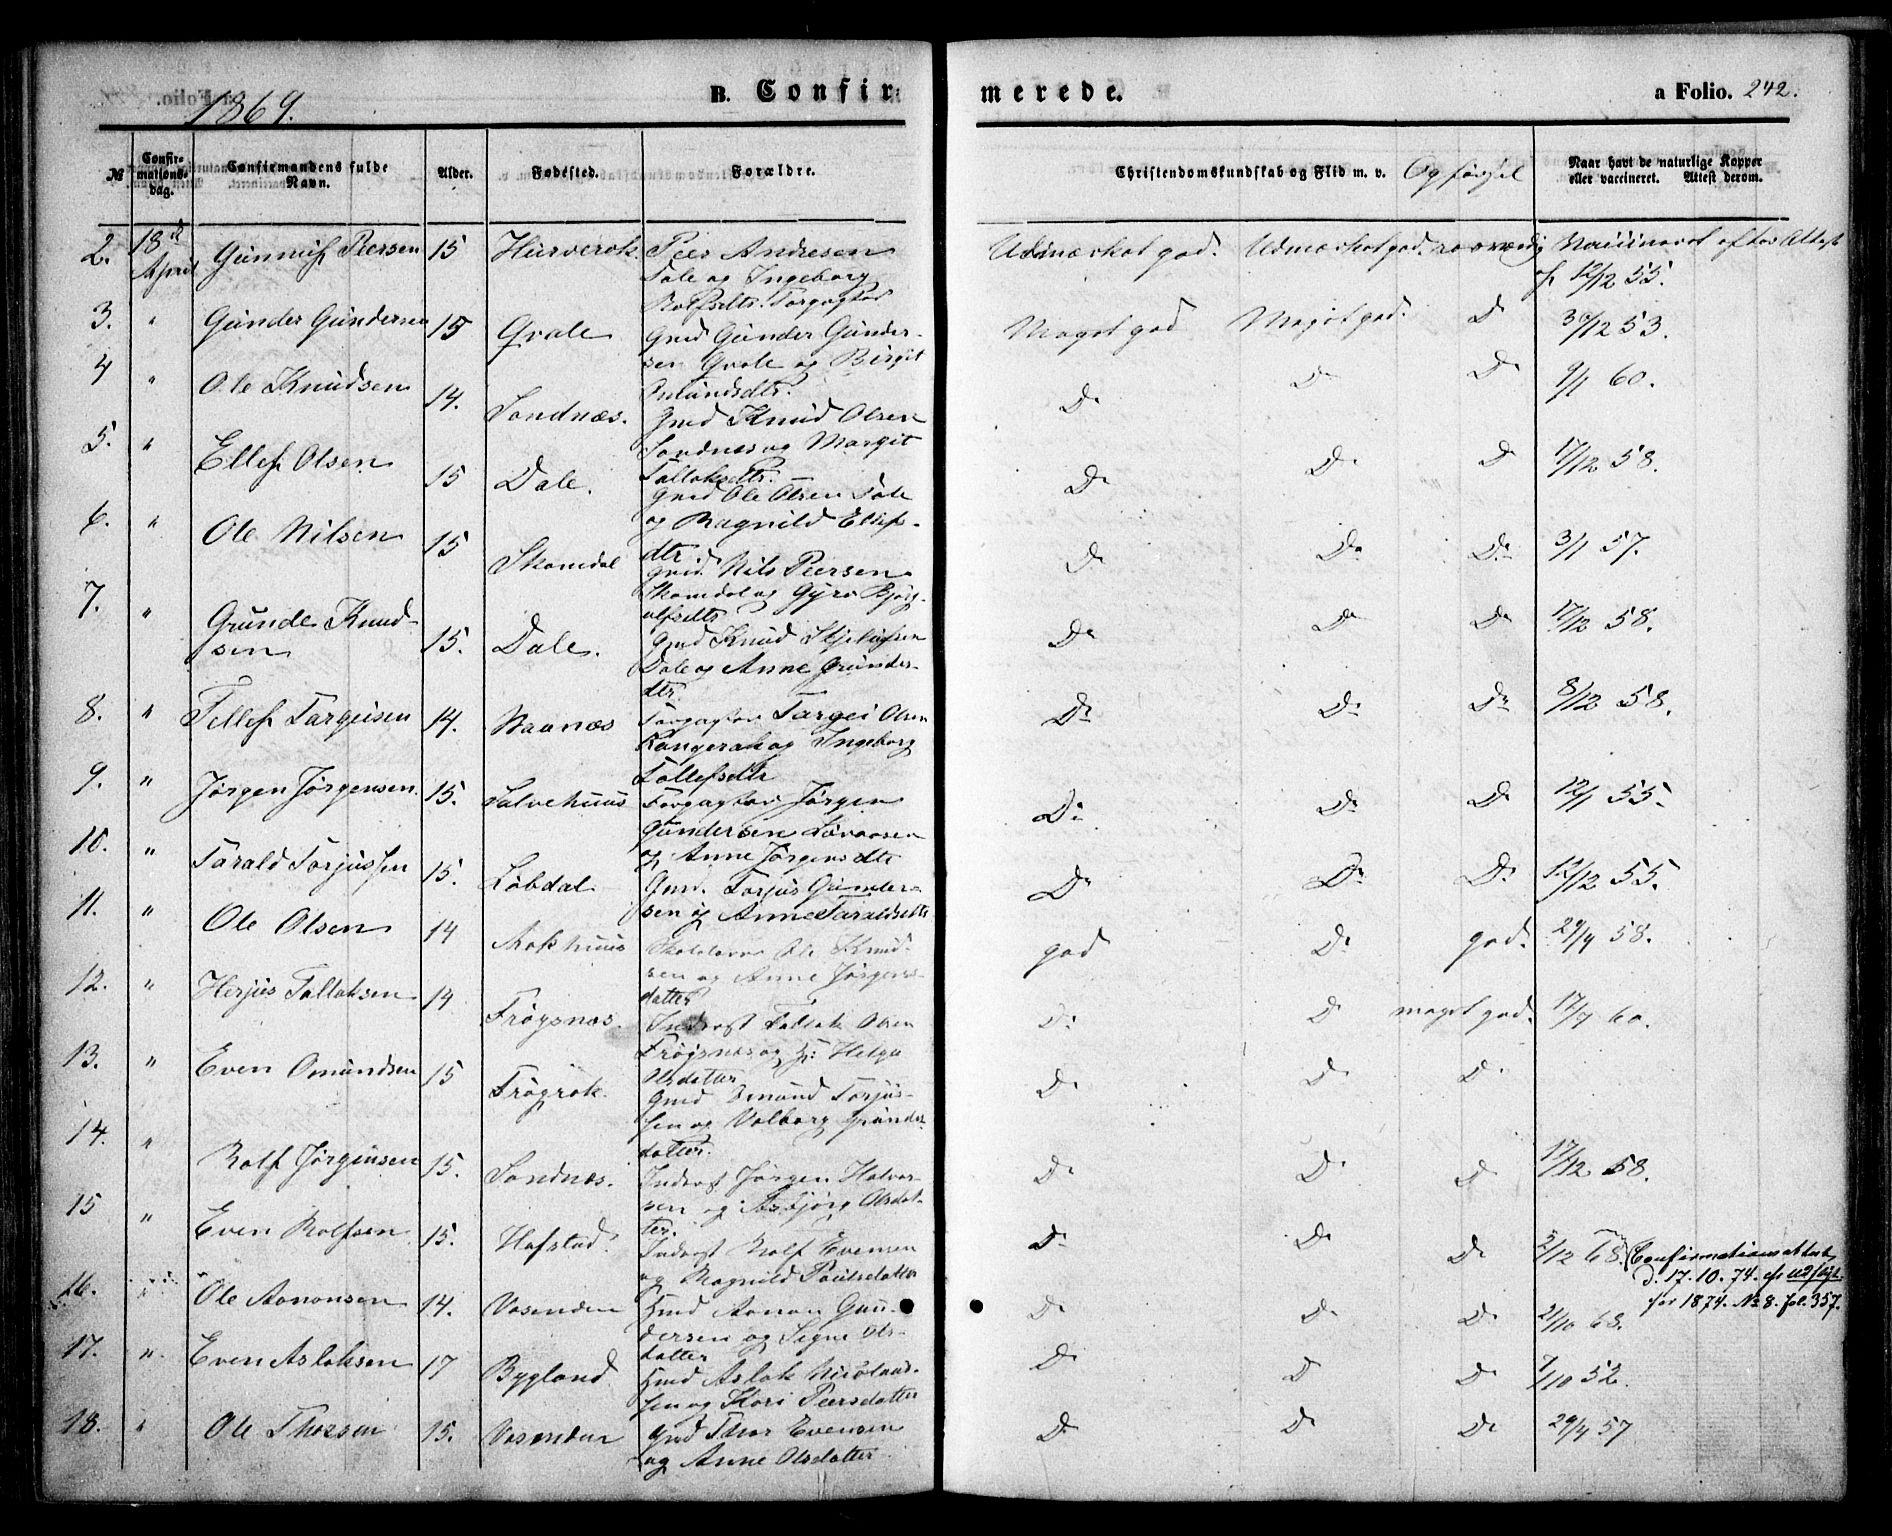 1869.
B. Confir
merede.
a Folio. 242.
№
Confirmationsdag.
Confirmandens fulde Navn.
Alder.
Fødested.
Forældre.
Christendomskundskab og Flid m. v. Opførsel
Naar havt de naturlige Kopper eller vaccineret. Attest derom.
2. 18d April Gunnuf Peersen 15 Hurverok. Peer Andresen
Dale og Ingeborg
Rolfsdtr.
Udmærket god. Udmærket god. Vaccineret efter Attest
af 12/12 55.
3. " Gunder Gundersen 15 Qvale Gmd Gunder Gunder-
sen Qvale og Birgit
Omundsdtr.
Meget god Meget god. D 30/12 53.
4 " Ole Knudsen 14. Sandnæs. Gmd Knud Olsen
Sandnes og Margit
Talleksdtr.
Do Do Do 9/1 60.
5. " Ellef Olsen 15 Dale. Gmd Ole Olsen Dale
og Ragnild Ellefs-
dtr
Do Do D 17/12 58.
6. " Ole Nilsen 15 Skomdal Gmd. Nils Peersen
Skomdal og Gyro Bjørg-
ulfsdtr
Do Do Do 3/1 57.
7. " Gunde Knud-
sen 15. Dale. Gmd Knud
Dale og Anne Gunders-
dtr
Do Do Do 17/12 58.
8. " Tellef Targeisen 14. Naanæs Targei Olsen
og Ingeborg
Tellefsdtr
Do Do Do 8/12 58.
9. " Jørgen Jørgensen. 15. Salvehuus Jørgen
Gundersen
og Anne Jørgensdtr
Do Do Do 12/1 55.
10. " Tarald Torjussen 15. Løbdal Gmd. Torjus Gunder-
sen og Anne Taraldsdtr
Do Do Do 12/12 55.
11. " Ole Olsen 14 Ole Knud-
sen og Anne Jørgens-
datter
god Do god. 29/9 58.
12. " Herjus Tallaksen 14 Frøysnæs. Inderst Tallak Olsen
Frøysnæs og H: Helga
Olsdatter
Do Do meget god. 17/9 60.
13. " Even Omundsen 15 Frøyrak. Gmd Omund Torjus-
sen og Valborg Gunder-
datter.
Do Do Do
14. " Rolf Jørgensen 15. Sandnæs. Inderst Jørgen Halvor-
sen og Asbjørg Olsdat-
ter.
Do Do D 17/12 58.
15 " Even Rolfsen 15. Hafstad. Inderst Rolf Evensen
og Ragnild Poulsdatter
Do Do Do 3/12 68. Confirmationsattest
d. 17. 10. 74. se udflyt.
for 1874. № 8. fol. 357.
16. " Ole Aanonsen 14. Vasenden Hmd Aanon Gun-
dersen og Signe Ols-
datter
Do Do Do 2/10 63.
17. " Even Aslaksen 17 Bygland Hmd Aslak Nicolaas-
sen og Kari Peersdatter
Do D Do 7/10 52.
18. " Ole Thorsen 15. Vasenden Gmd Thor Evensen
og Anne Olsdatter
Do Do Do 29/9 57